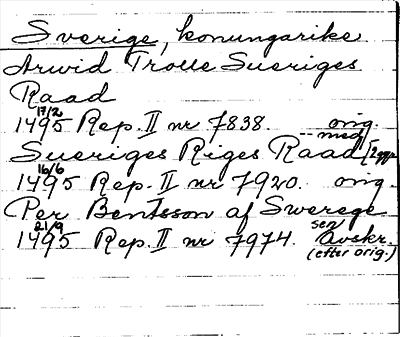 Sverige, konungarike
Arwid Trolle Sueriges
Raad
17/2
1495 Rep. II nr 7838. orig.
med
Sueriges Riges Raad
16/6
1495 Rep. II nr 7920. orig.
Per Bentsson af Swerege
21/9 sen
1495 Rep. II nr 7974. Avskr.
(efter orig.)